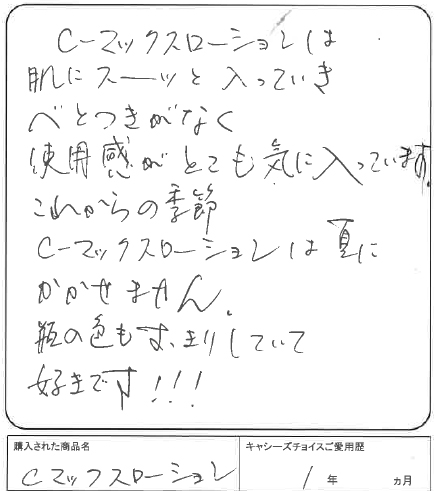 C-マックスローションは
肌にスーッと入っていき
べとつきがなく
使用感がとても気に入っています。
これからの季節
C-マックスローションは夏に
かかせません。
瓶の色もすっきりしていて
好きです!!!
購入された商品名
キャシーズチョイスご愛用歴
Cマックスローション
1年 ヵ月